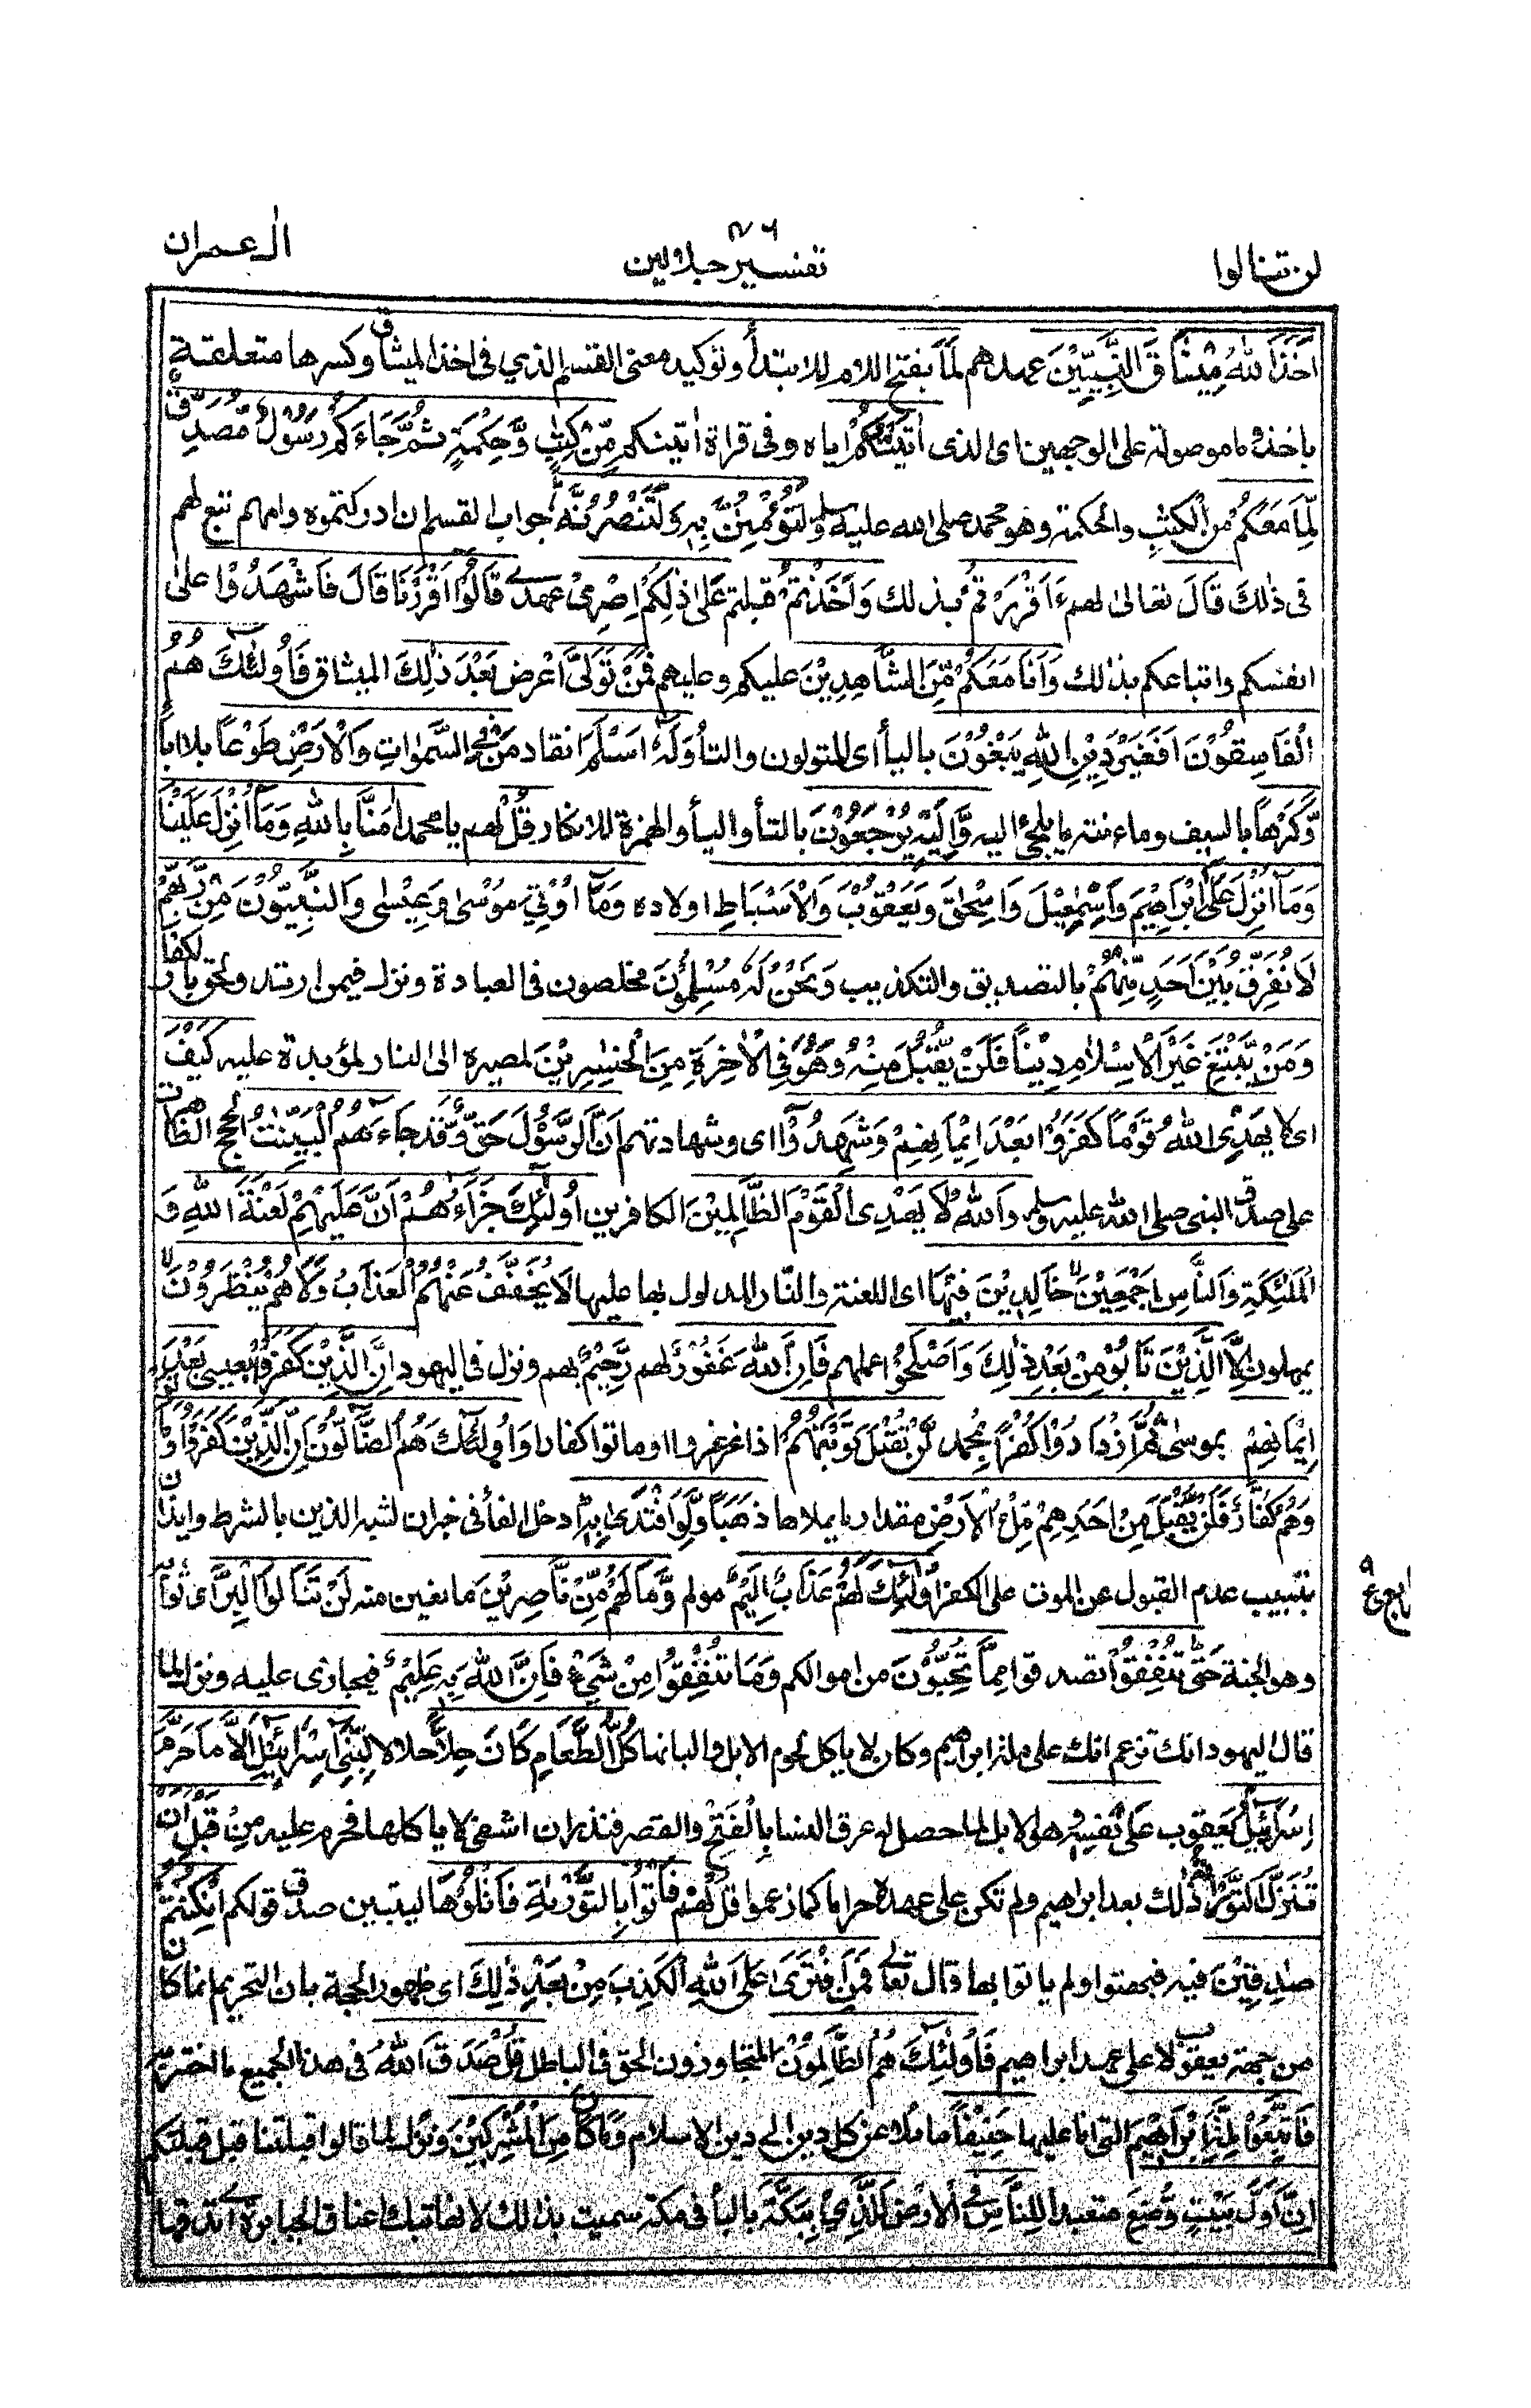 لن تنالوا
تفسير جلالين
اٰل عمران
اَخَذَ اللّٰهُ مِيْثَاقَ النَّبِيّٖنَ عهدهم لَمَا بفتح اللام للابتداء وتوكيد معنى القسم الذي في اخذ الميثاق وكسرها متعلقة
باخذ وما موصولة على الوجهين اى الذى اٰتَيْتُكُمْ اياه وفى قراة اٰتينٰكم مِّنْ كِتٰبٍ وَّحِكْمَةٍ ثُمَّ جَاءَكُمْ رَسُوْلٌ مُّصَدِّقٌ
لِّمَا مَعَكُمْ من الكتٰبِ والحكمة وهو محمد صلى الله عليه وسلم لَتُؤْمِنُنَّ بِهٖ وَلَتَنْصُرُنَّهٗ جواب القسم ان ادركتموه وامهم تبع لهم
فى ذٰلك قَالَ تعالىٰ لهم ءَاَقْرَرْتُمْ بذلك وَاَخَذْتُمْ قبلتم عَلىٰ ذٰلِكُمْ اِصْرِىْ عهدے قَالُوْا اَقْرَرْنَا قَالَ فَاشْهَدُوْا على
انفسكم واتباعكم بذلك وَاَنَا مَعَكُمْ مِّنَ الشَّاهِدِيْنَ عليكم وعليهم فَمَنْ تَوَلّىٰ اعْرض بَعْدَ ذٰلِكَ الميثاق فَاُولٰئِكَ هُمُ
الْفَاسِقُوْنَ اَفَغَيْرَ دِيْنِ اللّٰهِ يَبْغُوْنَ بالياء اى المتولون والتاء وَلَهٗ اَسْلَمَ انقاد مَنْ فِى السَّمٰوَاتِ وَالْاَرْضِ طَوْعًا بلا اباً
وَّكَرْهًا بالسيف ومعاينة ما يلجئ اليه وَّاِلَيْهِ يُرْجَعُوْنَ بالتاء والياء والهمزة للانكار قُلْ لهم يا محمد اٰمَنَّا بِاللّٰهِ وَمَا اُنْزِلَ عَلَيْنَا
وَمَا اُنْزِلَ عَلىٰ اِبْرَاهِيْمَ وَاِسْمٰعِيْلَ وَاِسْحٰقَ وَيَعْقُوْبَ وَالْاَسْبَاطِ اولاده وَمَا اُوْتِيَ مُوْسىٰ وَعِيْسىٰ وَالنَّبِيُّوْنَ مِنْ رَّبِّهِمْ
لَا نُفَرِّقُ بَيْنَ اَحَدٍ مِّنْهُمْ بالتصديق والتكذيب وَنَحْنُ لَهٗ مُسْلِمُوْنَ مخلصون فى العبادة ونزل فيمن ارتد ولحق بالكفار
وَمَنْ يَّبْتَغِ غَيْرَ الْاِسْلَامِ دِيْنًا فَلَنْ يُّقْبَلَ مِنْهُ وَهُوَ فِى الْاٰخِرَةِ مِنَ الْخٰسِرِيْنَ لمصيره الى النار لمؤبدة عليه كَيْفَ
اى لا يَهْدِى اللّٰهُ قَوْمًا كَفَرُوْا بَعْدَ اِيْمَانِهِمْ وَشَهِدُوْا اى وشهادتهم اَنَّ الرَّسُوْلَ حَقٌّ وَّقد جَاءَهُمُ الْبَيِّنٰتُ الحجج الظاهرات
على صدق النبى صلى الله عليه وسلم وَاللّٰهُ لَا يَهْدِى الْقَوْمَ الظَّالِمِيْنَ الكافرين اُولٰئِكَ جَزَاءُهُمْ اَنَّ عَلَيْهِمْ لَعْنَةَ اللّٰهِ وَ
الْمَلٰئِكَةِ وَالنَّاسِ اَجْمَعِيْنَ خَالِدِيْنَ فِيْهَا اى اللعنة والنار المدلول بها عليها لَا يُخَفَّفُ عَنْهُمُ الْعَذَابُ وَلَا هُمْ يُنْظَرُوْنَ
يمهلون اِلَّا الَّذِيْنَ تَابُوْا مِنْ بَعْدِ ذٰلِكَ وَاَصْلَحُوْا عملهم فَاِنَّ اللّٰهَ غَفُوْرٌ لهم رَّحِيْمٌ بهم ونزل فى اليهود اِنَّ الَّذِيْنَ كَفَرُوْا بعيسى بَعْدَ
اِيْمَانِهِمْ بموسىٰ ثُمَّ ازْدَادُوْا كُفْرًا بمحمد لَنْ تُقْبَلَ تَوْبَتُهُمْ اذا غرغروا او ماتوا كفارا وَاُولٰئِكَ هُمُ الضَّالُّوْنَ اِنَّ الَّذِيْنَ كَفَرُوْا وَمَاتُوْا
وَهُمْ كُفَّارٌ فَلَنْ يُّقْبَلَ مِنْ اَحَدِهِمْ مِلْءُ الْاَرْضِ مقدار ما يملاها ذَهَبًا وَّلَوِ افْتَدٰى بِهٖ ادخل الفاء فى خبر ان لشبه الذين بالشرط وايذانا
بتسبيب عدم القبول عن الموت على الكفر اُولٰئِكَ لَهُمْ عَذَابٌ اَلِيْمٌ مولم وَّمَا لَهُمْ مِّنْ نَّاصِرِيْنَ مانعين منه لَنْ تَنَالُوا الْبِرَّ اى ثوابه
وهو الجنة حَتّٰى تُنْفِقُوْا تصدقوا مِمَّا تُحِبُّوْنَ من اموالكم وَمَا تُنْفِقُوْا مِنْ شَىْءٍ فَاِنَّ اللّٰهَ بِهٖ عَلِيْمٌ فيجازى عليه ونزل لما
قال اليهود انك تزعم انك على ملة ابراهيم وكان لا ياكل لحوم الابل والبانها كُلُّ الطَّعَامِ كَانَ حِلًّا حلالا لِّبَنِىْ اِسْرَائِيْلَ اِلَّا مَا حَرَّمَ
اِسْرَائِيْلُ يعقوب عَلٰى نَفْسِهٖ وهو الابل لما حصل له عرق النسا بالفتح والقصر فنذر ان شفى لا ياكلها فحرم عليه مِنْ قَبْلِ اَنْ
تُنَزَّلَ التَّوْرٰةُ وذٰلك بعد ابراهيم ولم تكن على عهده حراما كما زعموا قُلْ لهم فَاْتُوْا بِالتَّوْرٰىةِ فَاتْلُوْهَا ليتبين صدق قولكم اِنْ كُنْتُمْ
صٰدِقِيْنَ فيه فبهتوا ولم ياتوا بها قال تعالى فَمَنِ افْتَرٰى عَلَى اللّٰهِ الْكَذِبَ مِنْ بَعْدِ ذٰلِكَ اى ظهور الحجة بان التحريم انما كان
من جهة يعقوب لا على عهد ابراهيم فَاُولٰئِكَ هُمُ الظَّالِمُوْنَ المتجاوزون الحق فى الباطل قُلْ صَدَقَ اللّٰهُ فى هذا الجميع ما اخبر به
فَاتَّبِعُوْا مِلَّةَ اِبْرَاهِيْمَ التى انا عليها حَنِيْفًا مائلا عن كل دين الى دين الاسلام وَمَا كَانَ مِنَ الْمُشْرِكِيْنَ ونزل لما قالوا قبلتنا قبل قبلتكم
اِنَّ اَوَّلَ بَيْتٍ وُّضِعَ متعبدا لِلنَّاسِ فى الارض لَلَّذِىْ بِبَكَّةَ بالباء فى مكة سميت بذلك لانها تبك اعناق الجبابرة اى تدقها